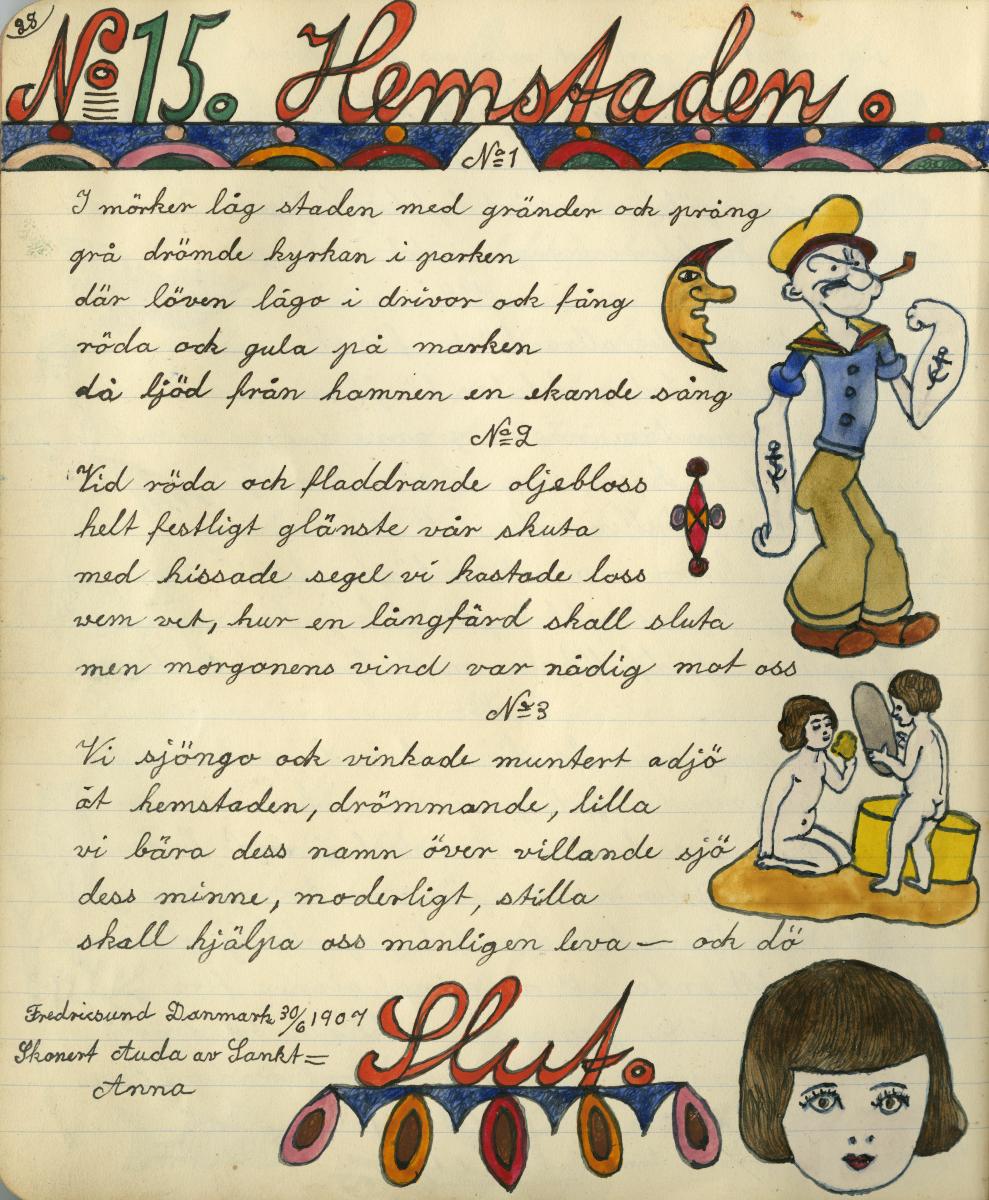 28
No 15. Hemstaden.
No 1
I mörker låg staden med gränder och prång
grå drömde kyrkan i parken
där löven lågo i drivor och fång
röda och gula på marken
då ljöd från hamnen en ekande sång
No 2
Vid röda och fladdrande oljebloss
helt festligt glänste vår skuta
med hissade segel vi kastade loss
vem vet, hur en långfärd skall sluta
men morgonens vind var nådig mot oss
No 3
Vi sjöngo och vinkade muntert adjö
åt hemstaden, drömmande, lilla
vi bära dess namn över villande sjö
dess minne, moderligt, stilla
skall hjälpa oss manligen leva — och dö
Fredricsund Danmark 30/6 1907
Skonert Auda av Sankt=
Anna
Slut.